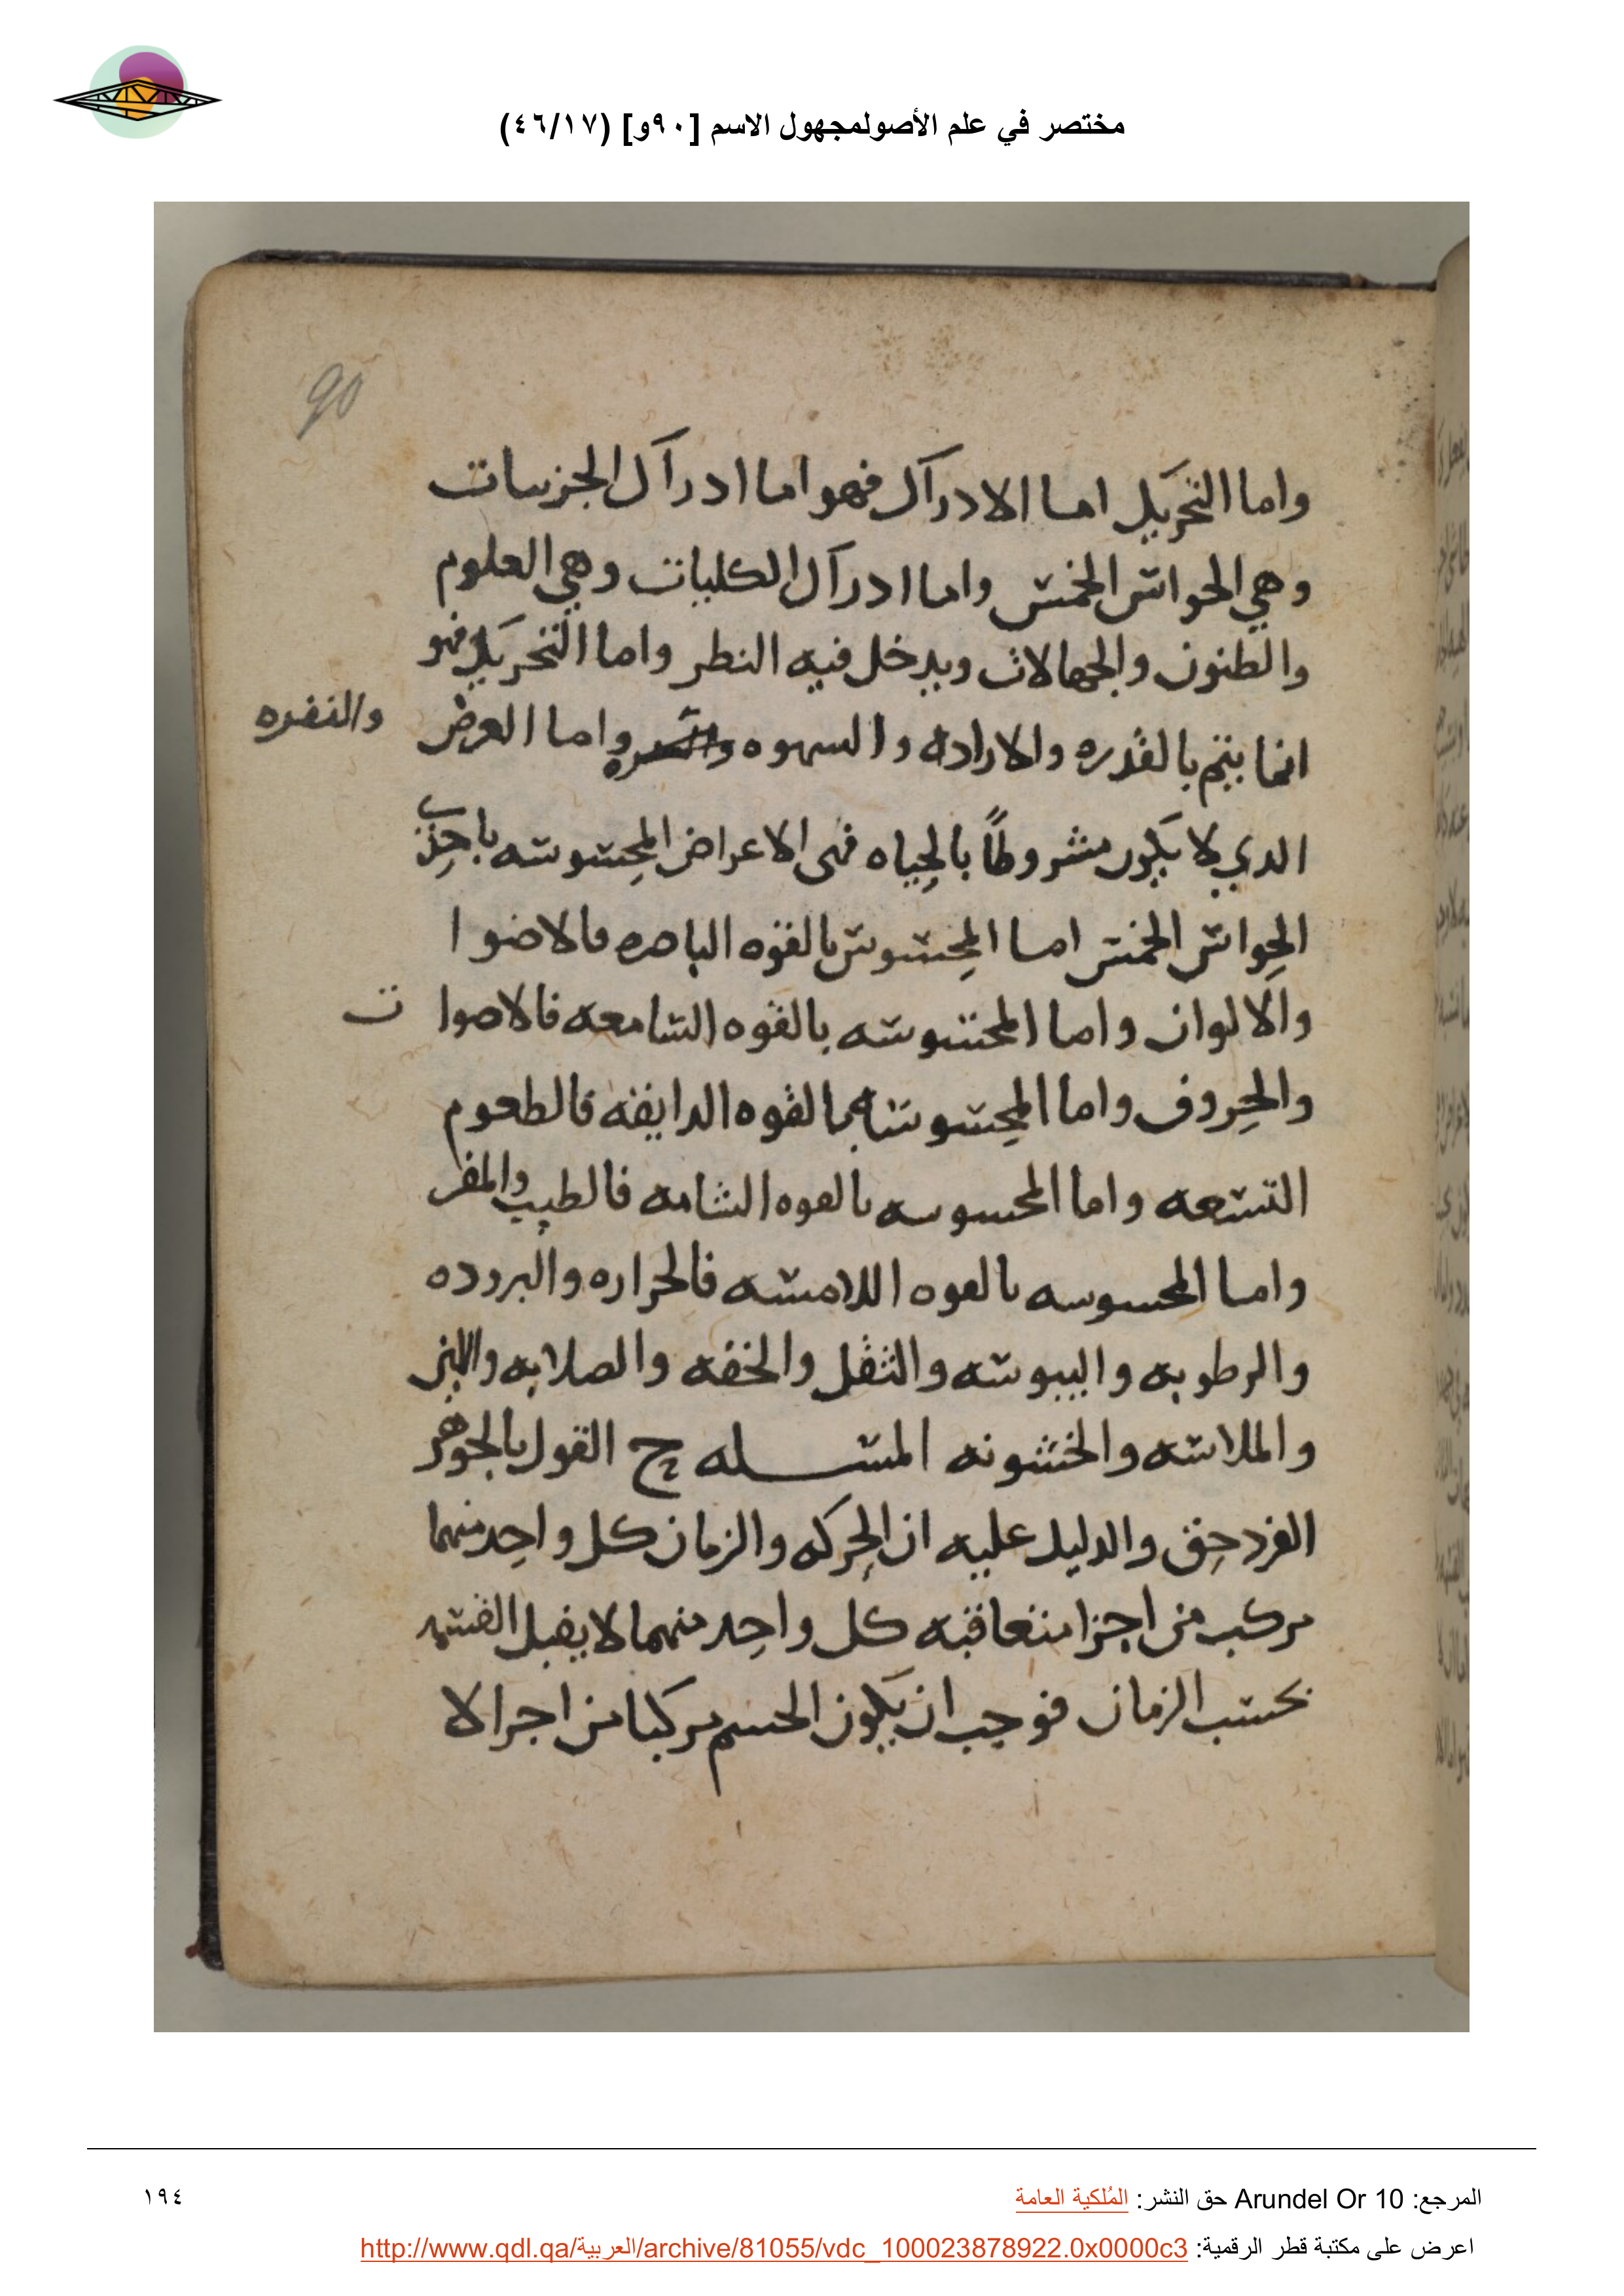 مختصر في علم الأصولمجهول الاسم [٩٠و] (٤٦/١٧)
90
واما التحريك اما الادراك فهو اما ادراك الجزييات
وهي الحواس الخمس واما ادراك الكليات وهي العلوم
والظنون والجهالات ويدخل فيه النظر واما التحريك فهو
انما يتم بالقدره والاراده والسهوه والنفره واما العرض
والنفره
الدي لا يكون مشروطًا بالحياه فهى الاعراض المحسوسه باحدى
الحواس الخمس اما المحسوس بالقوه الباصره فالاضوا
والالوان واما المحسوسه بالقوه السامعه فالاصوات
والحروف واما المحسوسه بالقوه الدايقه فالطعوم
التسعه واما المحسوسه بالقوه الشامه فالطيب والمقر
واما المحسوسه بالقوه اللامسه فالحراره والبروده
والرطوبه واليبوسه والثقل والخفه والصلابه واللين
والملاسه والخشونه المسله ج القول بالجوهر
الفرد حق والدليل عليه ان الحركه والزمان كل واحد منهما
مركب من اجزا متعاقبه كل واحد منهما لا يقبل القسمه
بحسب الزمان فوجب ان يكون الجسم مركبا من اجزا لا
المرجع: Arundel Or 10 حق النشر: المُلكية العامة
١٩٤
اعرض على مكتبة قطر الرقمية: http://www.qdl.qa/العربية/archive/81055/vdc_100023878922.0x0000c3